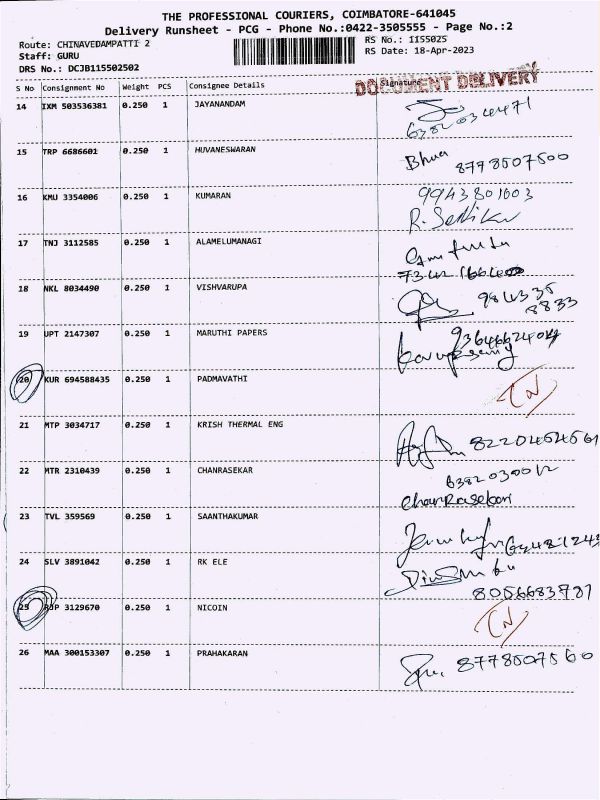 THE PROFESSIONAL COURIERS, COIMBATORE-641045
Delivery Runsheet - PCG - Phone No.:0422-3505555 - Page No.:2
Route: CHINAVEDAMPATTI 2 RS No.: 1155025
Staff: GURU RS Date: 18-Apr-2023
DRS No.: DCJB115502502
DOCUMENT DELIVERY
S No Consignment No Weight PCS Consignee Details Signature
14 IXM 503536381 0.250 1 JAYANANDAM
15 TRP 6686601 0.250 1 HUVANESWARAN Bhua 8778507500
16 KMU 3354006 0.250 1 KUMARAN 9943801003
17 TNJ 3112585 0.250 1 ALAMELUMANAGI
18 NKL 8034490 0.250 1 VISHVARUPA 984335
8833
19 UPT 2147307 0.250 1 MARUTHI PAPERS
20 KUR 694588435 0.250 1 PADMAVATHI CN
21 MTP 3034717 0.250 1 KRISH THERMAL ENG 8220454561
22 MTR 2310439 0.250 1 CHANRASEKAR
23 TVL 359569 0.250 1 SAANTHAKUMAR
24 SLV 3891042 0.250 1 RK ELE
8056683781
25 RJP 3129670 0.250 1 NICOIN CN
26 MAA 300153307 0.250 1 PRAHAKARAN 8778507560